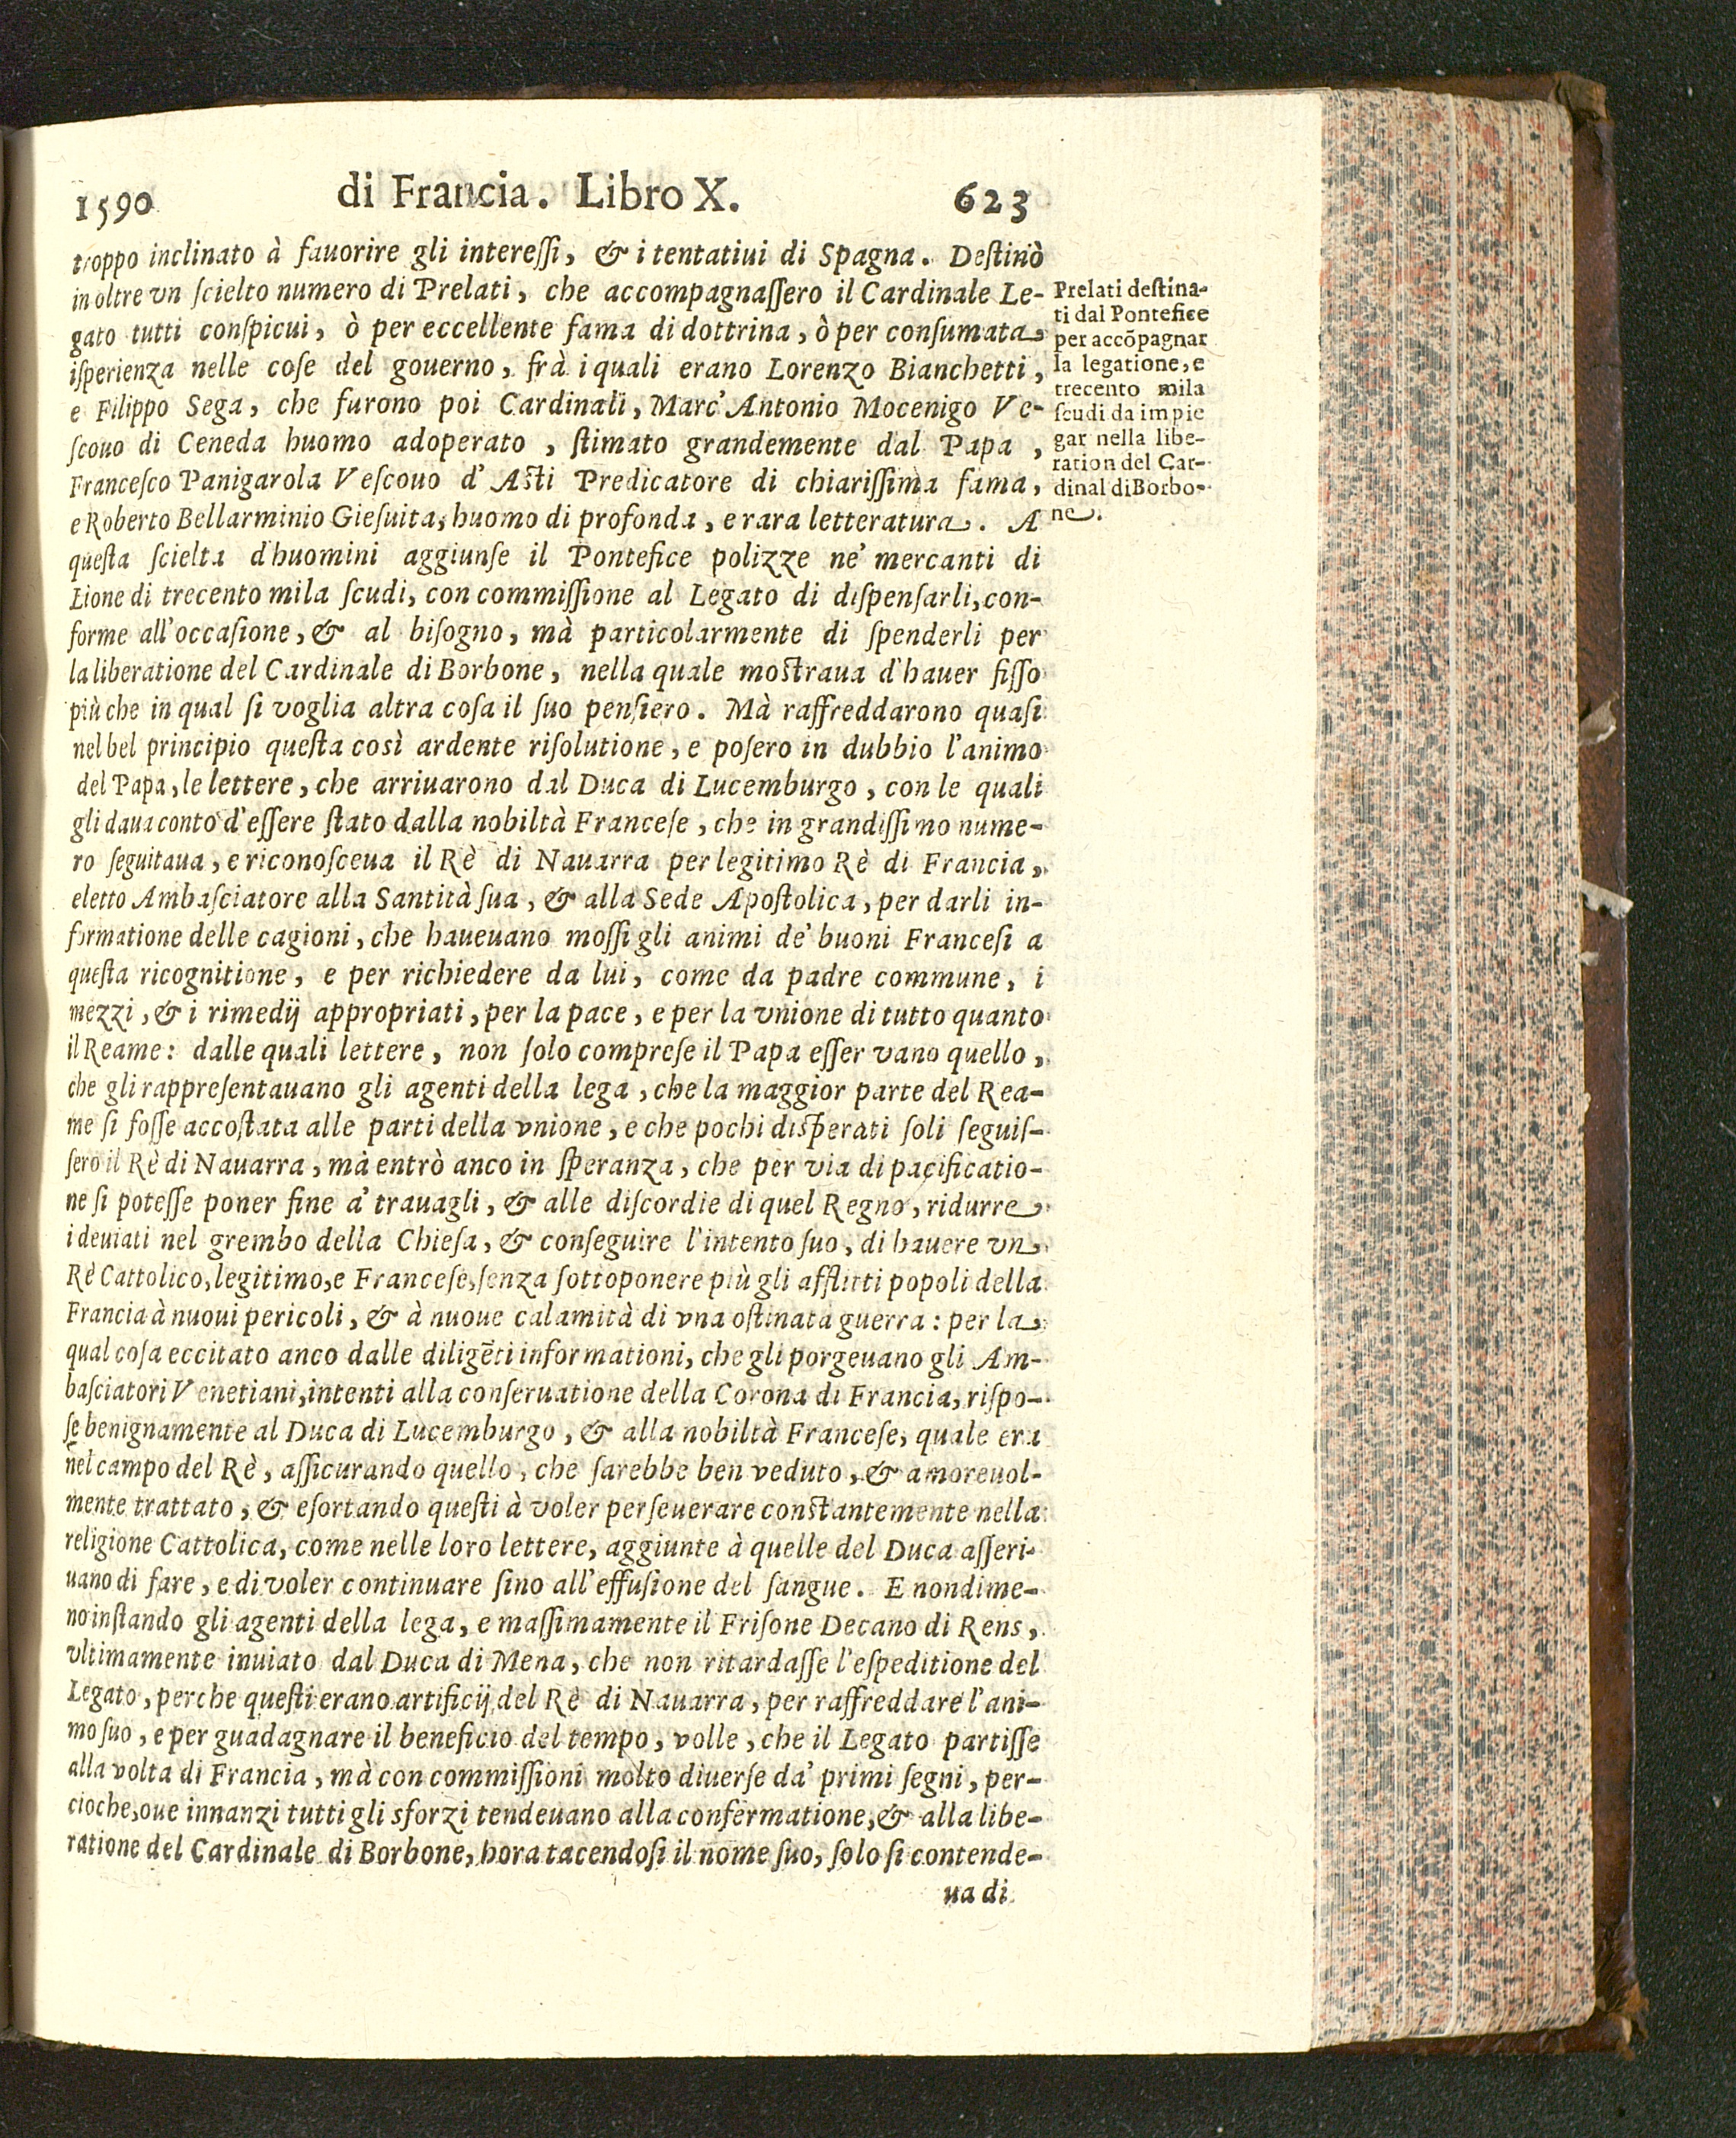 1590 di Francia. Libro X. 623
troppo inclinato à fauorire gli intereſſi, & i tentatiui di Spagna. Deſtinò
in oltre vn ſcielto numero di Prelati, che accompagnaſſero il Cardinale Le-
gato tutti conſpicui, ò per eccellente fama di dottrina, ò per conſumata
iſperienza nelle coſe del gouerno, frà i quali erano Lorenzo Bianchetti,
e Filippo Sega, che furono poi Cardinali, Marc'Antonio Mocenigo Ve-
ſcouo di Ceneda huomo adoperato, ſtimato grandemente dal Papa,
Franceſco Panigarola Veſcouo d'Aſti Predicatore di chiariſſima fama,
e Roberto Bellarminio Gieſuita, huomo di profonda, e rara letteratura. A
queſta ſcielta d'huomini aggiunſe il Pontefice polizze ne' mercanti di
Lione di trecento mila ſcudi, con commiſſione al Legato di diſpenſarli, con-
forme all'occaſione, & al biſogno, mà particolarmente di ſpenderli per
la liberatione del Cardinale di Borbone, nella quale moſtraua d'hauer fiſſo
più che in qual ſi voglia altra coſa il ſuo penſiero. Mà raffreddarono quaſi
nel bel principio queſta così ardente riſolutione, e poſero in dubbio l'animo
del Papa, le lettere, che arriuarono dal Duca di Lucemburgo, con le quali
gli daua conto d'eſſere ſtato dalla nobiltà Franceſe, che in grandiſſimo nume-
ro ſeguitaua, e riconoſceua il Rè di Nauarra per legitimo Rè di Francia,
eletto Ambaſciatore alla Santità ſua, & alla Sede Apoſtolica, per darli in-
formatione delle cagioni, che haueuano moſſi gli animi de' buoni Franceſi a
queſta ricognitione, e per richiedere da lui, come da padre commune, i
mezzi, & i rimedij appropriati, per la pace, e per la vnione di tutto quanto
il Reame: dalle quali lettere, non ſolo compreſe il Papa eſſer vano quello,
che gli rappreſentauano gli agenti della lega, che la maggior parte del Rea-
me ſi foſſe accoſtata alle parti della vnione, e che pochi diſperati ſoli ſeguiſ-
ſero il Rè di Nauarra, mà entrò anco in ſperanza, che per via di pacificatio-
ne ſi poteſſe poner fine a' trauagli, & alle diſcordie di quel Regno, ridurre
i deuiati nel grembo della Chieſa, & conſeguire l'intento ſuo, di hauere vn
Rè Cattolico, legitimo, e Franceſe, ſenza ſottoponere più gli afflitti popoli della
Francia à nuoui pericoli, & à nuoue calamità di vna oſtinata guerra: per la
qual coſa eccitato anco dalle diligẽti informationi, che gli porgeuano gli Am-
baſciatori Venetiani, intenti alla conſeruatione della Corona di Francia, riſpo-
ſe benignamente al Duca di Lucemburgo, & alla nobiltà Franceſe, quale era
nel campo del Rè, aſſicurando quello, che ſarebbe ben veduto, & amoreuol-
mente trattato, & eſortando queſti à voler perſeuerare conſtantemente nella
religione Cattolica, come nelle loro lettere, aggiunte à quelle del Duca aſſeri-
uano di fare, e di voler continuare ſino all'effuſione del ſangue. E nondime-
no inſtando gli agenti della lega, e maſſimamente il Friſone Decano di Rens,
vltimamente inuiato dal Duca di Mena, che non ritardaſſe l'eſpeditione del
Legato, perche queſti erano artificij del Rè di Nauarra, per raffreddare l'ani-
mo ſuo, e per guadagnare il beneficio del tempo, volle, che il Legato partiſſe
alla volta di Francia, mà con commiſſioni molto diuerſe da' primi ſegni, per-
cioche, oue innanzi tutti gli sforzi tendeuano alla confermatione, & alla libe-
ratione del Cardinale di Borbone, hora tacendoſi il nome ſuo, ſolo ſi contende-
ua di
Prelati deſtina-
ti dal Pontefice
per accõpagnar
la legatione, e
trecento mila
ſcudi da impie
gar nella libe-
ration del Car-
dinal di Borbo-
ne.